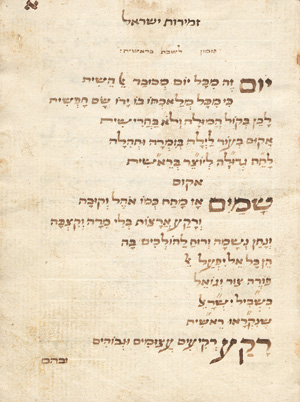 א
זמירות ישראל
פזמון לשבת בראשית
יום זה מכל יום מכובד
כי מכל מלאכתו בו ירו שם חפשית
לכן בקול המולה ולא בחרישית
אקום בעוד לילה בזמרה ותהלה
לתת גדולה ליוצר בראשית
אקום
שמים אז מתח כמו אהל וקובה
ורקע ארצות בלי מדה וקצבה
ונתן נשמה ורוח להולכים בה
הן כל אלי יפעל
פורה צור וגואל
בשביל
שנקראו ראשית
רקע רקיעים עצומים וגבוהים
ובהם